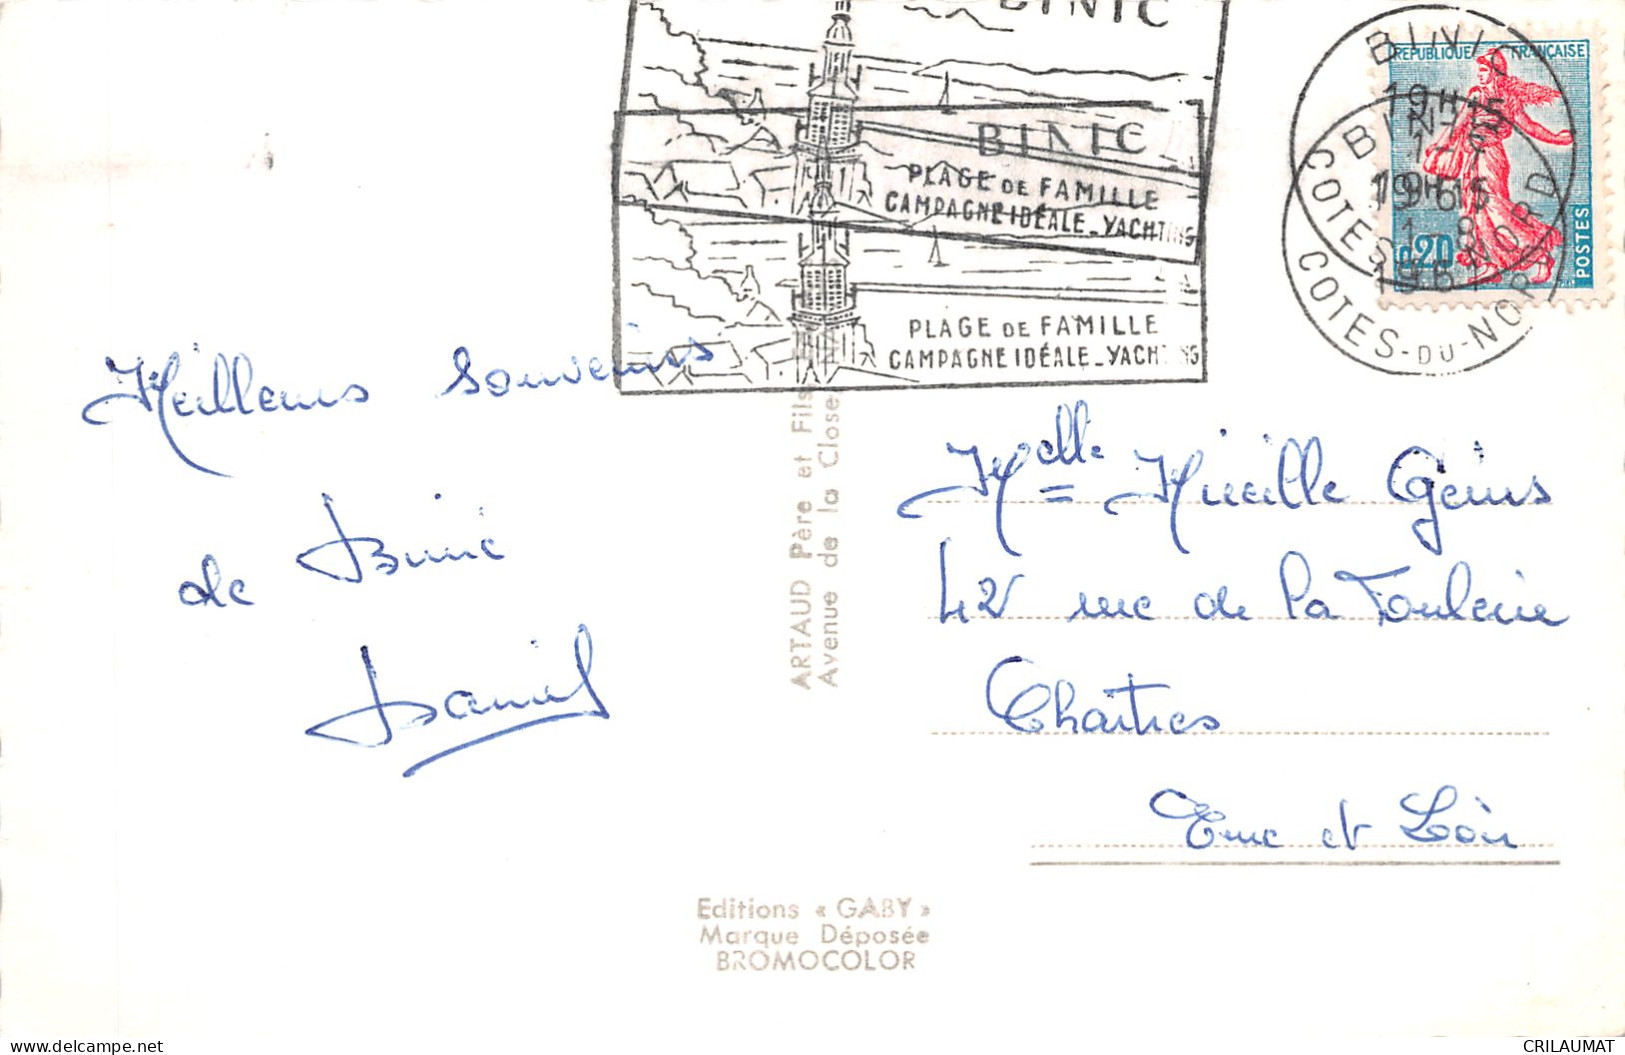 BINIC
BINIC
PLAGE DE FAMILLE
CAMPAGNE IDÉALE_YACHTING
PLAGE DE FAMILLE
CAMPAGNE IDÉALE_YACHTING
BINIC
19H15
1961
COTES-DU-NORD
BINIC
19H15
1-8
1961
COTES-DU-NORD
REPUBLIQUE FRANÇAISE
0,20
POSTES
Meilleurs Souvenirs
de Binic
Daniel
ARTAUD Père et Fils
Avenue de la Close
Melle Mireille
42 rue de la Foulerie
Chartres
Eure et Loir
Editions « GABY »
Marque Déposée
BROMOCOLOR
CRILAUMAT